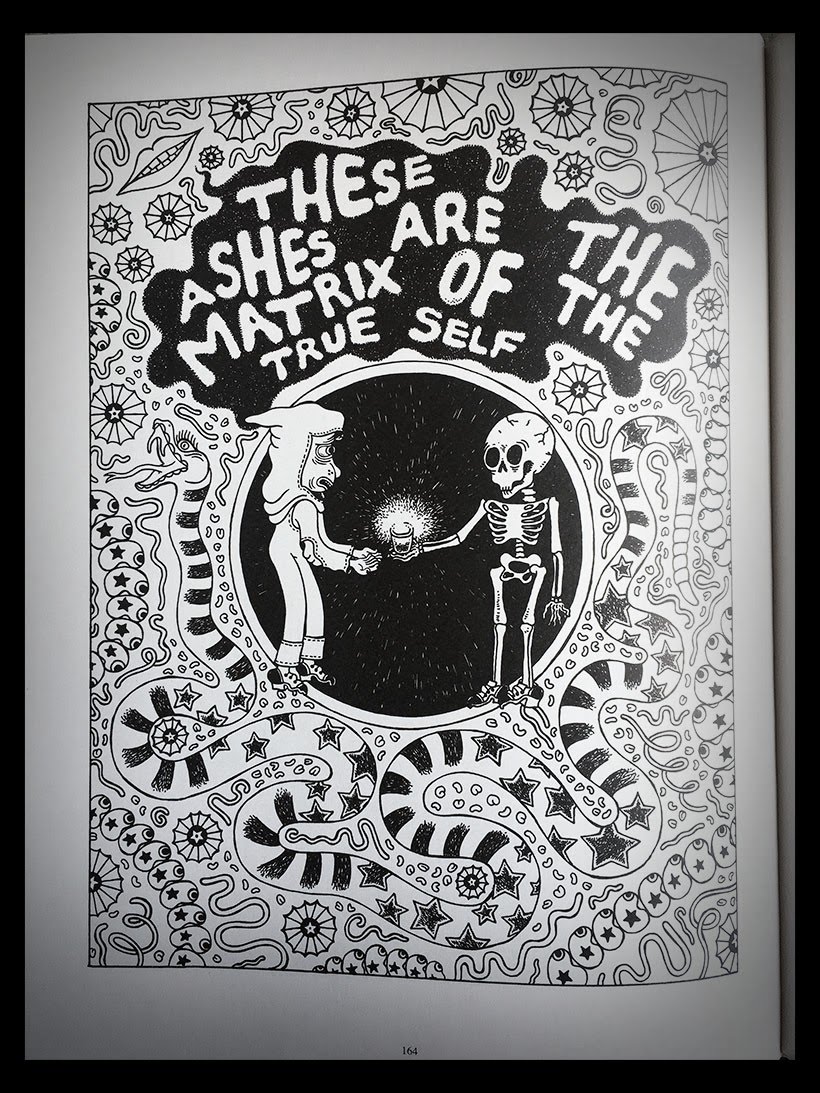 THESE
ASHES ARE THE
MATRIX OF THE
TRUE SELF
164